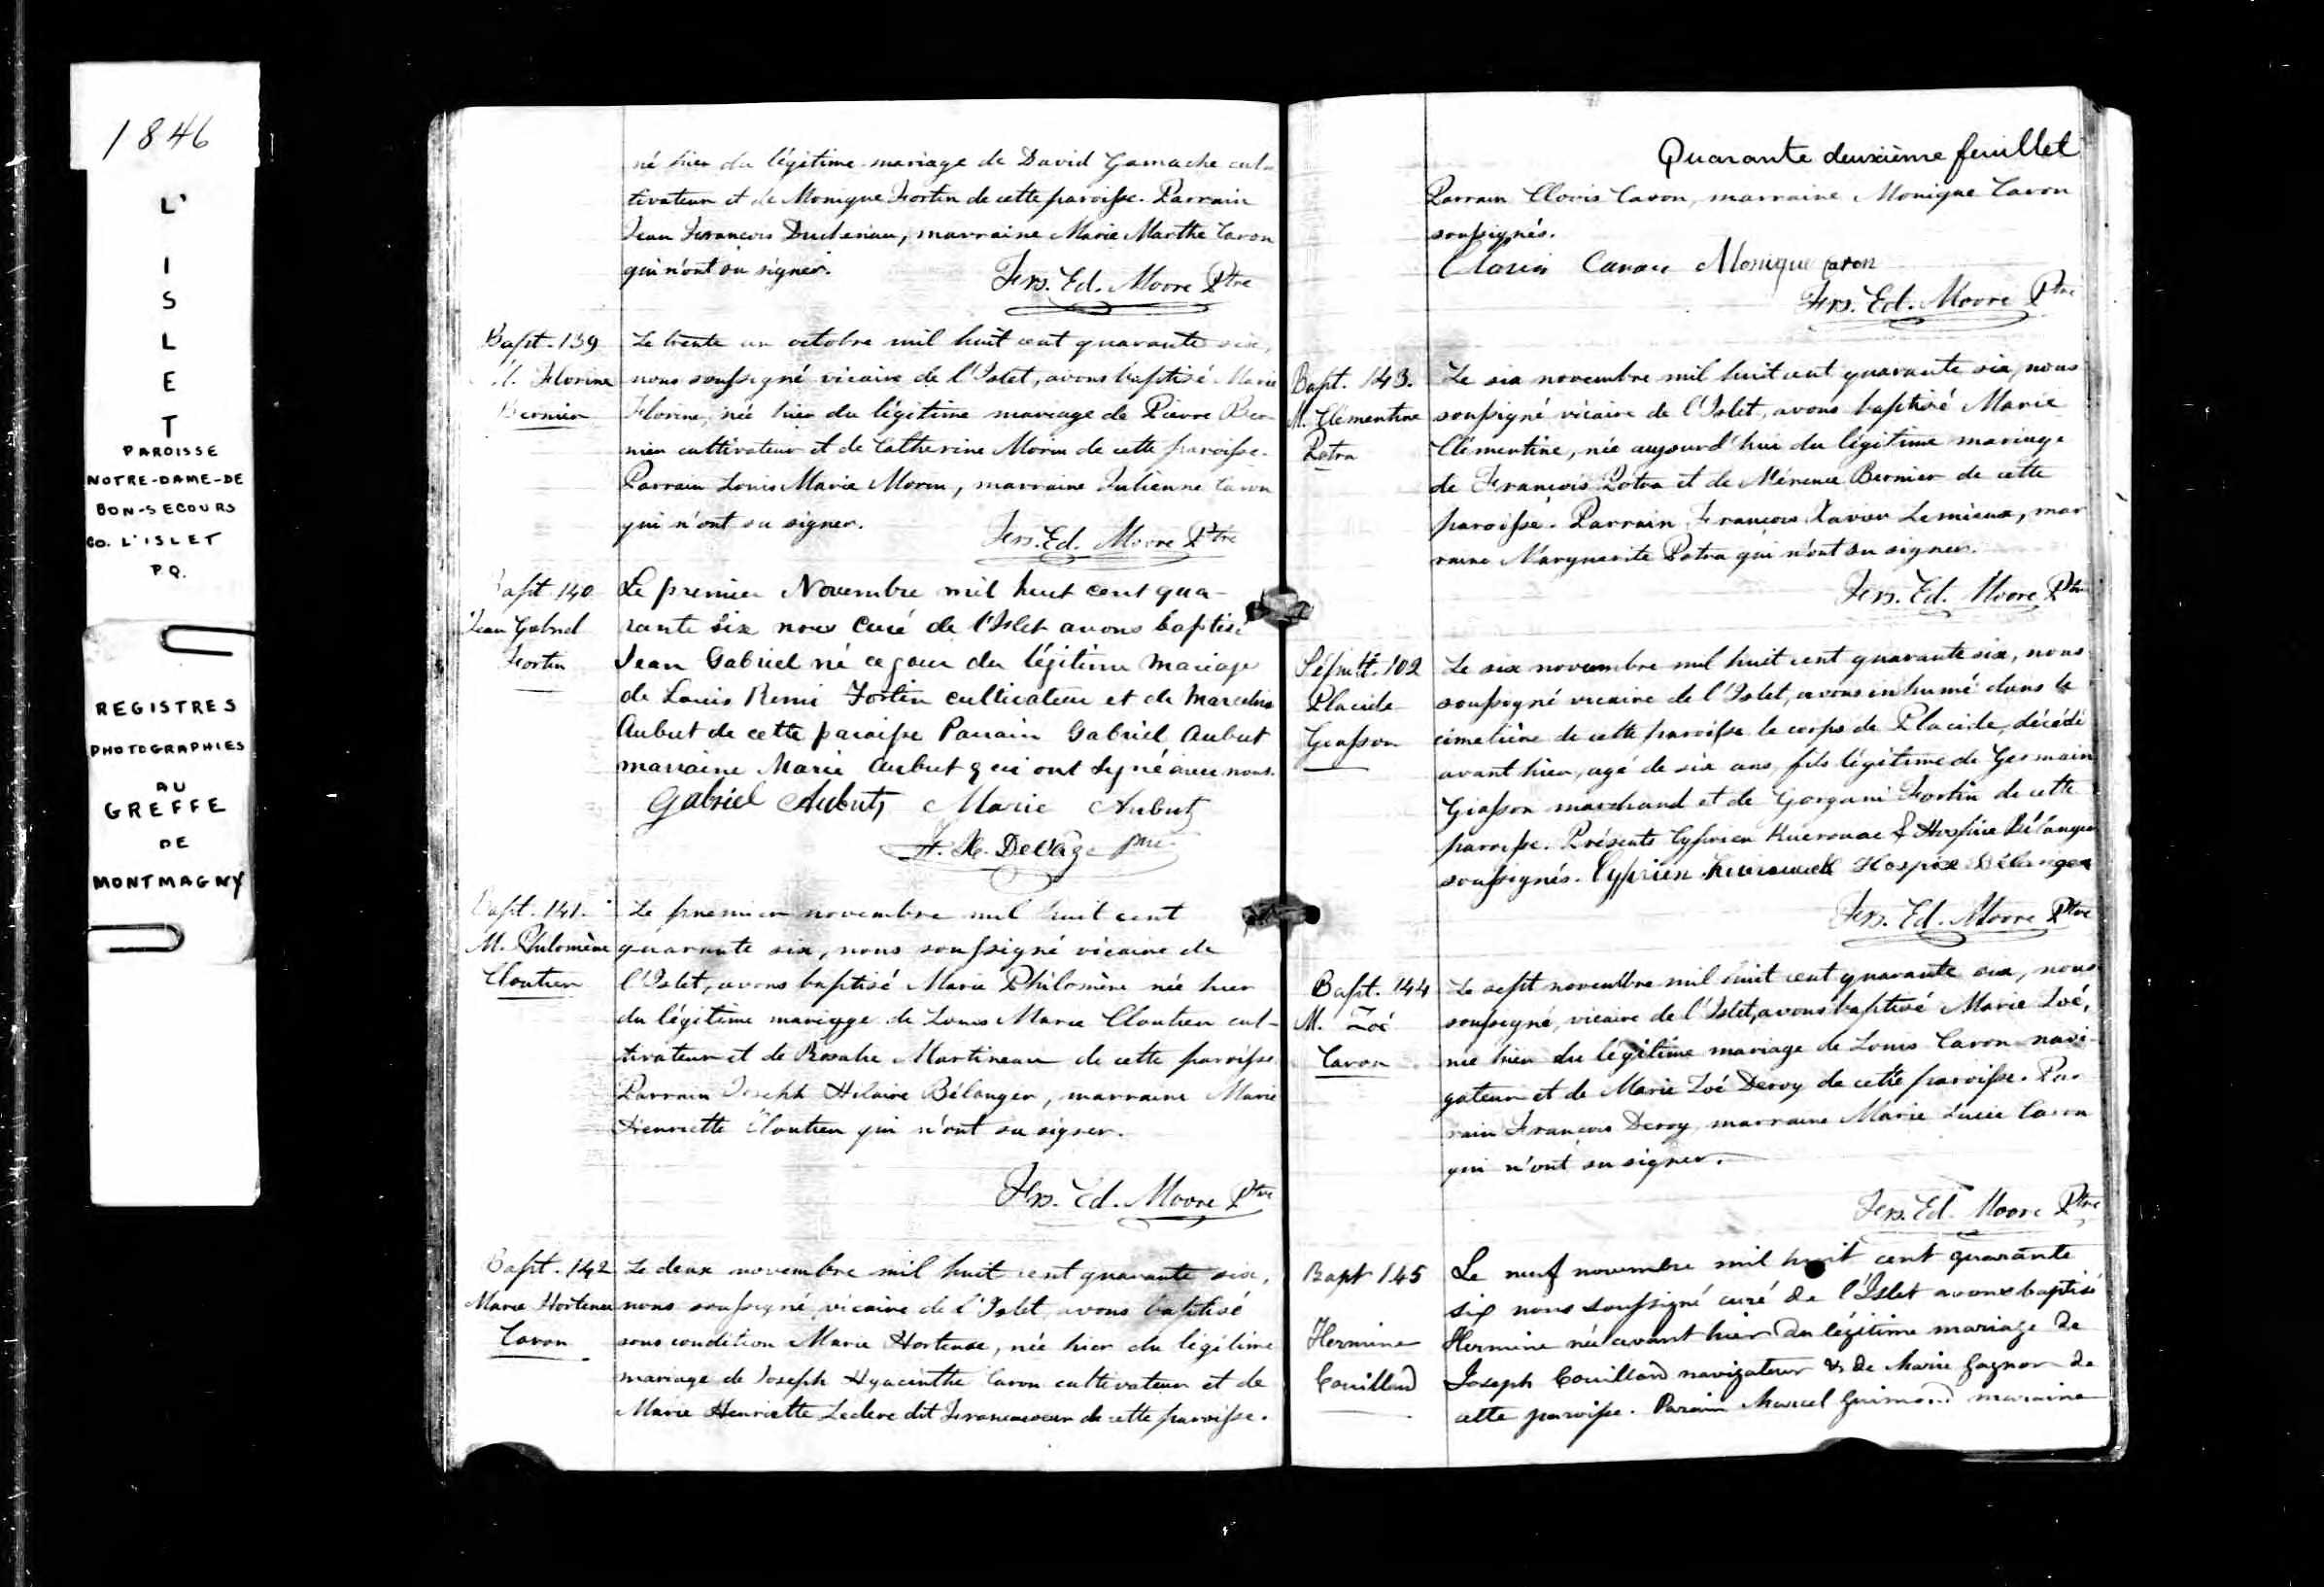 1846
L'
I
S
L
E
T
PAROISSE
NOTRE-DAME-DE
BON-SECOURS
CO. L'ISLET
P.Q.
REGISTRES
PHOTOGRAPHIES
AU
GREFFE
DE
MONTMAGNY
né hier du légitime mariage de David Gamache cul-
tivateur et de Monique Fortin de cette paroisse. Parrain
Jean François Duchenau, marraine Marie Marthe Caron
qui n'ont su signer.
Frs. Ed. Moore Ptre
Bapt. 139
M. Florine
Bernier
Le trente un octobre mil huit cent quarante six,
nous soussigné vicaire de l'Islet, avons baptisé Marie
Florine, née hier du légitime mariage de Pierre Ber-
nier cultivateur et de Catherine Morin de cette paroisse.
Parrain Louis Marie Morin, marraine Julienne Caron
qui n'ont su signer.
Frs. Ed. Moore Ptre
Bapt. 140
Jean Gabriel
Fortin
Le premier Novembre mil huit cent qua-
rante six nous Curé de l'Islet avons baptisé
Jean Gabriel né ce jour du légitime mariage
de Louis Remi Fortin cultivateur et de Marceline
Aubut de cette paroisse Parrain Gabriel Aubut
marraine Marie Aubut qui ont signé avec nous.
Gabriel Aubut Marie Aubut
F. X. Delâge Ptre
Bapt. 141.
M. Philomène
Cloutier
Le premier novembre mil huit cent
quarante six, nous soussigné vicaire de
l'Islet, avons baptisé Marie Philomène née hier
du légitime mariage de Louis Marie Cloutier cul-
tivateur et de Rosalie Martineau de cette paroisse
Parrain Joseph Hilaire Bélanger, marraine Marie
Henriette Cloutier qui n'ont su signer.
Frs. Ed. Moore Ptre
Bapt. 142
Marie Hortense
Caron
Le deux novembre mil huit cent quarante six,
nous soussigné vicaire de l'Islet avons baptisé
sous condition Marie Hortense, née hier du légitime
mariage de Joseph Hyacinthe Caron cultivateur et de
Marie Henriette Leclerc dit Francoeur de cette paroisse.
Quarante deuxième feuillet
Parrain Clovis Caron, marraine Monique Caron
soussignés.
Clovis Caron Monique Caron
Frs. Ed. Moore Ptre
Bapt. 143.
M. Clémentine
Potra
Le six novembre mil huit cent quarante six, nous
soussigné vicaire de l'Islet, avons baptisé Marie
Clémentine, née aujourd'hui du légitime mariage
de François Potra et de Mérence Bernier de cette
paroisse. Parrain François Xavier Lemieux, mar
raine Marguerite Potra qui n'ont su signer.
Frs. Ed. Moore Ptre
Sépult. 102
Placide
Giasson
Le six novembre mil huit cent quarante six, nous
soussigné vicaire de l'Islet, avons inhumé dans le
cimetière de cette paroisse le corps de Placide, décédé
avant hier, agé de six ans, fils légitime de Germain
Giasson marchand et de Gorgani Fortin de cette
paroisse. Présents Cyprien Kuerouac & Hospice Bélanger
soussignés. Cyprien Hospice Bélanger
Frs. Ed. Moore Ptre
Bapt. 144
M. Zoé
Caron
Le sept novembre mil huit cent quarante six, nous
soussigné, vicaire de l'Islet, avons baptisé Marie Zoé,
née hier du légitime mariage de Louis Caron navi-
gateur et de Marie Zoé Deroy de cette paroisse. Par
rain François Deroy marraine Marie Lucie Caron
qui n'ont su signer.
Frs. Ed. Moore Ptre
Bapt 145
Hermine
Couillard
Le neuf novembre mil huit cent quarante
six nous soussigné curé de l'Islet avons baptisé
Hermine née avant hier du légitime mariage de
Joseph Couillard navigateur & de Marie Gagnon de
cette paroisse. Parain Marcel Guimond maraine